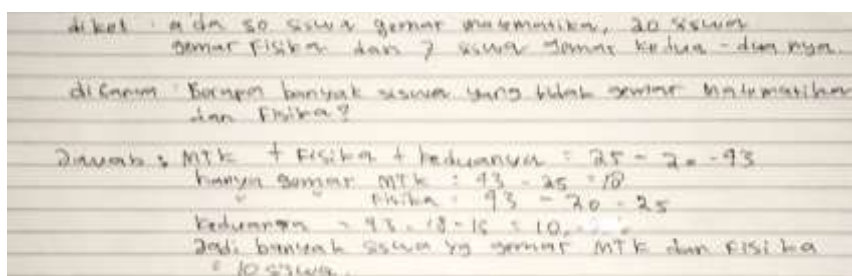 diket : ada 50 siswa gemar matematika, 20 siswa
gemar Fisika dan 7 siswa gemar kedua-duanya.
ditanya : Berapa banyak siswa yang tidak gemar Matematika
dan Fisika?
Jawab : MTK + Fisika + keduanya = 25 - 20 - 93
hanya gemar MTK : 43 - 25 = 18
" " Fisika = 93 - 20 - 25
keduanya = 93 - 18 - 15 = 10
Jadi banyak siswa yg gemar MTK dan Fisika
= 10 siswa.